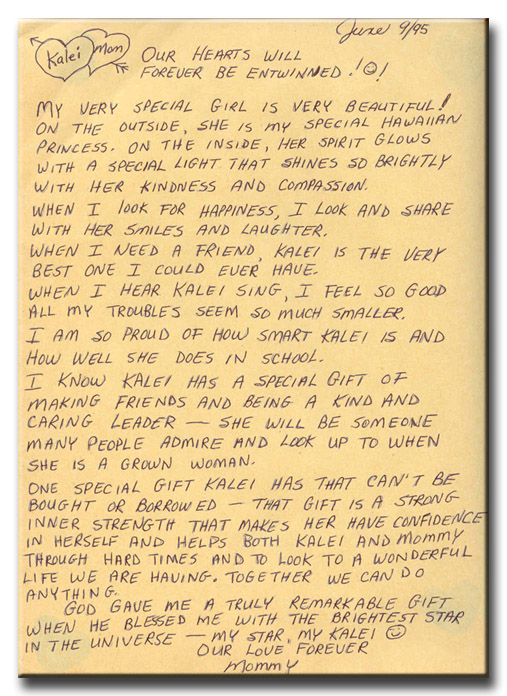 June 9/95
Kalei Mom
OUR HEARTS WILL
FOREVER BE ENTWINNED!☺!
MY VERY SPECIAL GIRL IS VERY BEAUTIFUL!
ON THE OUTSIDE, SHE IS MY SPECIAL HAWAIIAN
PRINCESS. ON THE INSIDE, HER SPIRIT GLOWS
WITH A SPECIAL LIGHT THAT SHINES SO BRIGHTLY
WITH HER KINDNESS AND COMPASSION.
WHEN I LOOK FOR HAPPINESS, I LOOK AND SHARE
WITH HER SMILES AND LAUGHTER.
WHEN I NEED A FRIEND, KALEI IS THE VERY
BEST ONE I COULD EVER HAVE.
WHEN I HEAR KALEI SING, I FEEL SO GOOD
ALL MY TROUBLES SEEM SO MUCH SMALLER.
I AM SO PROUD OF HOW SMART KALEI IS AND
HOW WELL SHE DOES IN SCHOOL.
I KNOW KALEI HAS A SPECIAL GIFT OF
MAKING FRIENDS AND BEING A KIND AND
CARING LEADER — SHE WILL BE SOMEONE
MANY PEOPLE ADMIRE AND LOOK UP TO WHEN
SHE IS A GROWN WOMAN.
ONE SPECIAL GIFT KALEI HAS THAT CAN'T BE
BOUGHT OR BORROWED — THAT GIFT IS A STRONG
INNER STRENGTH THAT MAKES HER HAVE CONFIDENCE
IN HERSELF AND HELPS BOTH KALEI AND MOMMY
THROUGH HARD TIMES AND TO LOOK TO A WONDERFUL
LIFE WE ARE HAVING. TOGETHER WE CAN DO
ANYTHING.
GOD GAVE ME A TRULY REMARKABLE GIFT
WHEN HE BLESSED ME WITH THE BRIGHTEST STAR
IN THE UNIVERSE — MY STAR, MY KALEI ☺
OUR LOVE FOREVER
MOMMY